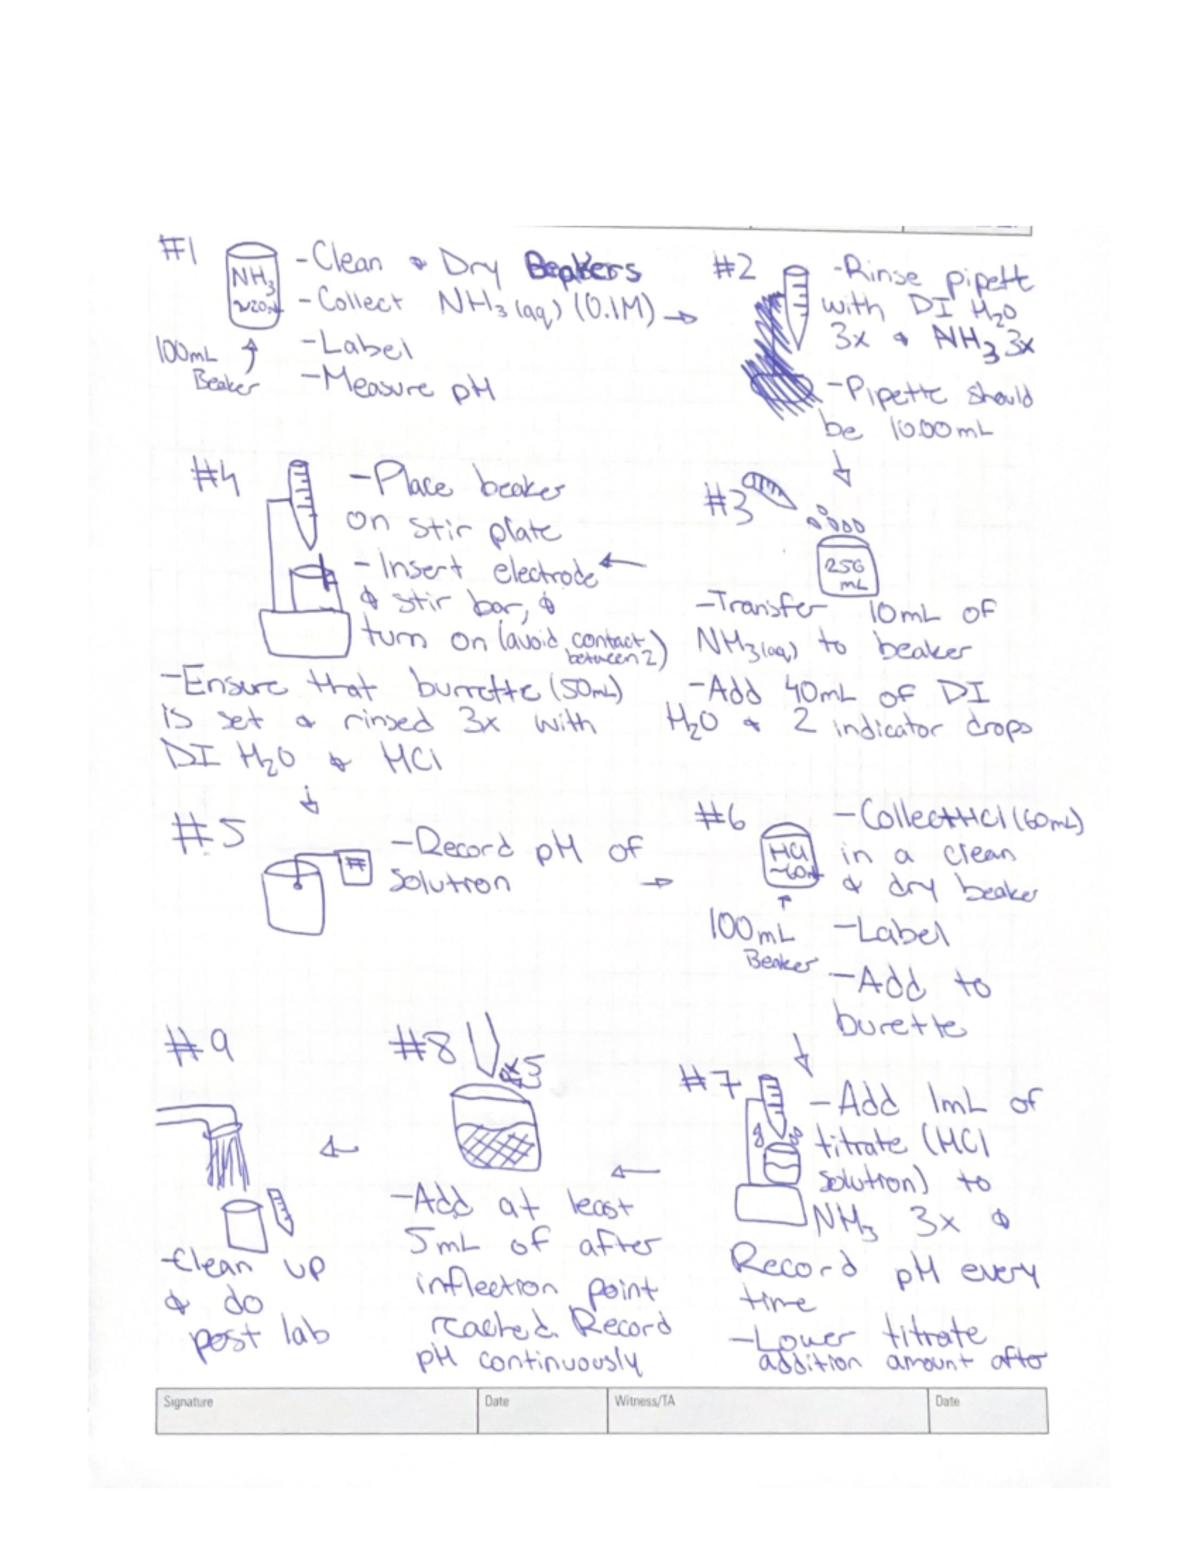 #1
NH3
~20mL
100mL
Beaker
-Clean & Dry Beakers
-Collect NH3(aq) (0.1M)
-Label
-Measure pH
#2
-Rinse pipett
with DI H2O
3x & NH3 3x
-Pipette should
be 10.00mL
#3
250
mL
-Transfer 10mL of
NH3(aq) to beaker
-Add 40mL of DI
H2O & 2 indicator drops
#4
-Place beaker
on stir plate
-Insert electrode
& stir bar, &
turn on (avoid contact
between 2)
-Ensure that burrette (50mL)
is set & rinsed 3x with
DI H2O & HCl
#5
-Record pH of
solution
#6
HCl
~60mL
100mL
Beaker
-Collect HCl (60mL)
in a clean
& dry beaker
-Label
-Add to
burette
#7
-Add 1mL of
titrate (HCl
solution) to
NH3 3x &
Record pH every
time
-Lower titrate
addition amount after
#8
x5
-Add at least
5mL of after
inflection point
reached. Record
pH continuously
#9
-Clean up
& do
post lab
Signature
Date
Witness/TA
Date